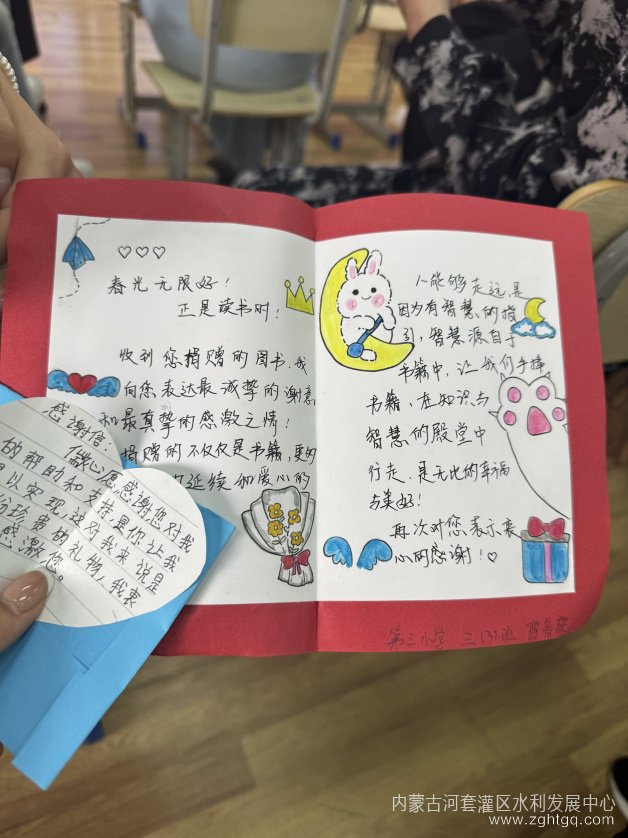 春光无限好!
正是读书时!
收到您捐赠的图书,我
向您表达最诚挚的谢意
和最真挚的感激之情!
捐赠的不仅仅是书籍,更的
延续和爱心的
人能够走远,是
因为有智慧的指
引,智慧源自于
书籍中,让我们手捧
书籍,在知识与
智慧的殿堂中
行走,是无比的幸福
与美好!
再次对您表示衷
心的感谢!♡
第三小学 三(3)班 曹
感谢信:
微心愿感谢您对我
的帮助和支持是你让我
以实现,这对我来说是
份珍贵的礼物,我衷
感激您。
内蒙古河套灌区水利发展中心
www.zghtgq.com